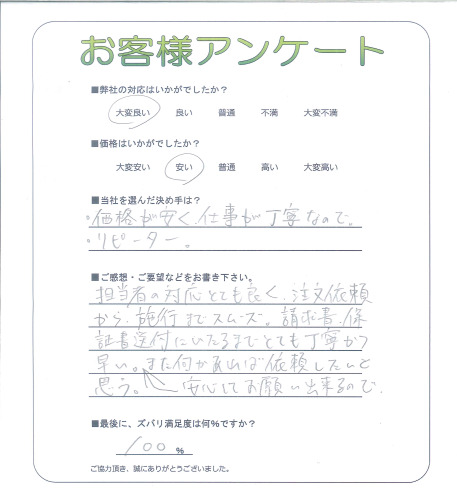 お客様アンケート
■弊社の対応はいかがでしたか?
大変良い 良い 普通 不満 大変不満
■価格はいかがでしたか?
大変安い 安い 普通 高い 大変高い
■当社を選んだ決め手は?
・価格が安く、仕事が丁寧なので。
・リピーター。
■ご感想・ご要望などをお書き下さい。
担当者の対応とても良く、注文依頼
から施行までスムーズ。請求書、保
証書送付にいたるまでとても丁寧かつ
早い。また何かあれば依頼したいと
思う。 安心してお願い出来るので
■最後に、ズバリ満足度は何%ですか?
100 %
ご協力頂き、誠にありがとうございました。